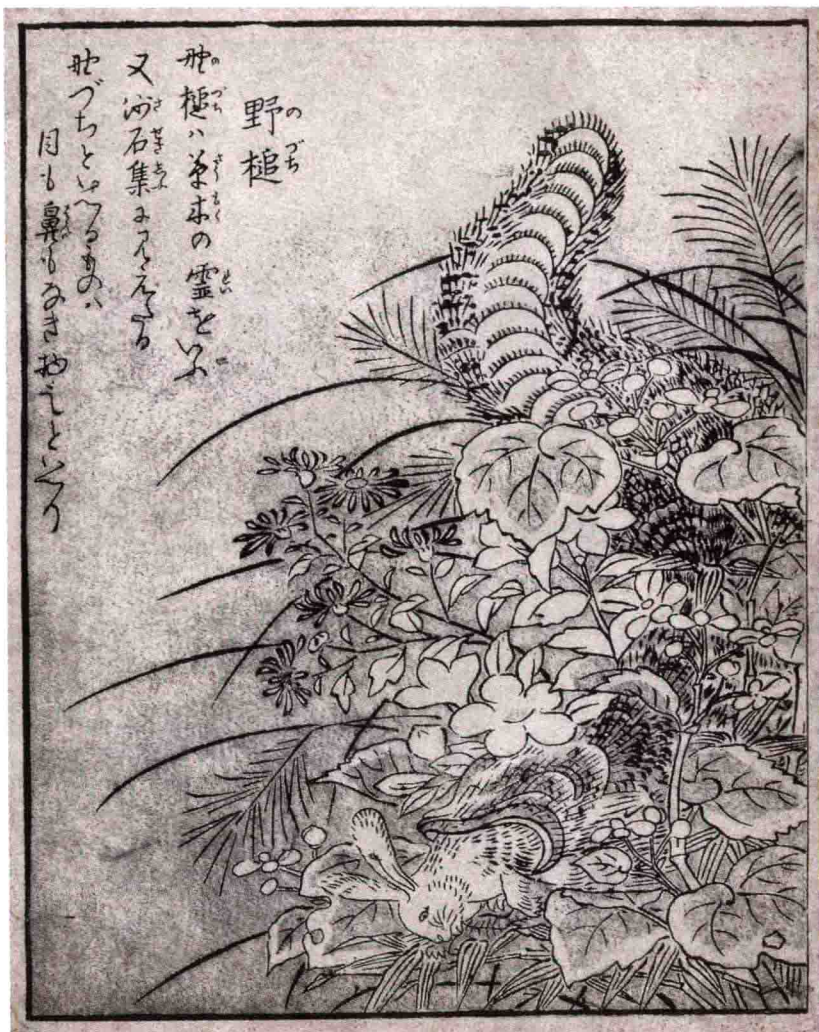 野槌
のづち
埜槌ハ草木の霊をいふ
又沙石集に見えたる
埜づちといへるものハ
目も鼻もなき物也といへり